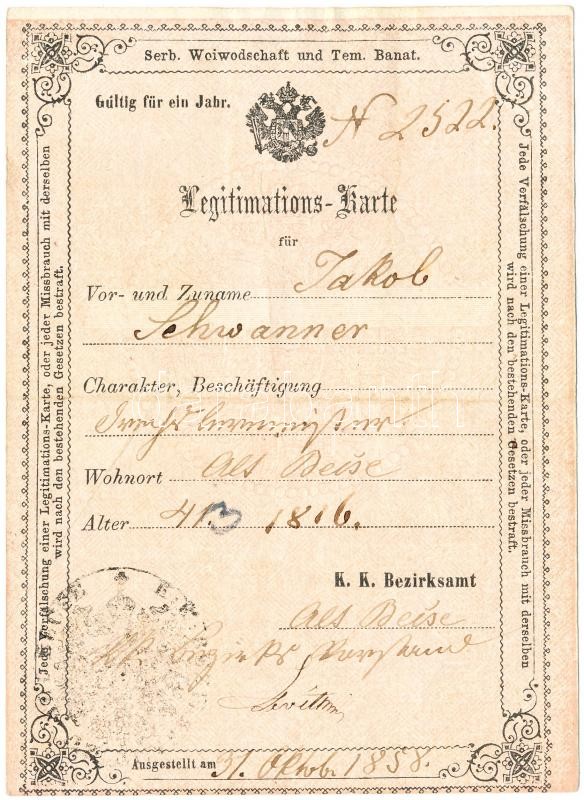 Serb. Woiwodschaft und Tem. Banat.
Gültig für ein Jahr.
N 2522.
Legitimations-Karte
für
Vor- und Zuname Jakob
Schwanner
Charakter, Beschäftigung
Drechslermeister
Wohnort Alt Becse
Alter 1816.
K. K. Bezirksamt
Alt Becse
Bezirks Vorstand
Ausgestellt am 31. Oktob. 1858.
Jede Verfälschung einer Legitimations-Karte, oder jeder Missbrauch mit derselben
wird nach den bestehenden Gesetzen bestraft.
Jede Verfälschung einer Legitimations-Karte, oder jeder Missbrauch mit derselben
wird nach den bestehenden Gesetzen bestraft.